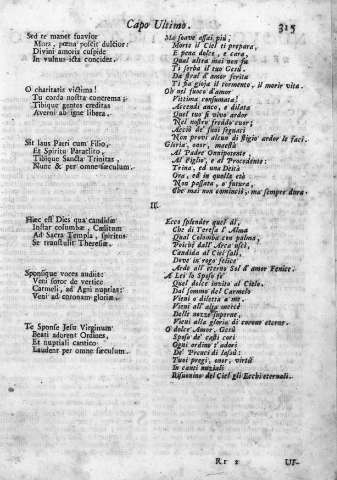 Capo Ultimo. 315
Sed te manet suavior
Mors, pœna poscit dulcior:
Divini amoris cuspide
In vulnus icta concides.
O charitatis victima!
Tu corda nostra concrema;
Tibique gentes creditas
Averni ab igne libera.
Sit laus Patri cum Filio,
Et Spiritu Paraclito,
Tibique Sancta Trinitas,
Nunc & per omne sæculum.
Ma soave assai più,
Morte il Ciel ti prepara,
E pena dolce, e cara,
Qual altra mai non fu
Ti serba il tuo Gesù.
Da stral d'amor ferita
Ti fia gioja il tormento, il morir vita.
Oh nel fuoco d'amor
Vittima consumata!
Accendi anco, e dilata
Quel tuo sì vivo ardor
Nel nostro freddo cuor;
Acciò de' suoi seguaci
Non provi alcun di stigio ardor le faci.
Gloria, onor, maestà
Al Padre Onnipotente,
Al Figlio, e al Procedente:
Trina, ed una Deità
Ora, ed in quella età
Non passata, e futura,
Che mai non cominciò, ma sempre dura.
II.
Hæc est Dies qua candidæ
Instar columbæ, Cœlitum
Ad Sacra Templa, spiritus
Se transtulit Theresiæ.
Sponsique voces audiit:
Veni soror de vertice
Carmeli, ad Agni nuptias:
Veni ad coronam gloriæ.
Te Sponse Jesu Virginum
Beati adorent Ordines,
Et nuptiali cantico
Laudent per omne sæculum.
Ecco splender quel dì,
Che di Teresa l'Alma
Qual Colomba con palma,
Poichè dall'Arca uscì,
Candida al Ciel salì,
Dove in rogo felice
Arde all'eterno Sol d'amor Fenice.
A Lei lo Sposo fe'
Quel dolce invito al Cielo.
Dal sommo del Carmelo
Vieni o diletta a me.
Vieni all'alta mercè
Delle nozze superne,
Vieni alla gloria di corone eterne.
O dolce Amor, Gesù
Sposo de' casti cori
Ogni ordine t'adori
De' Prenci di lassù:
Tuoi pregi, onor, virtù
In canti nuziali
Risuonino del Ciel gli Ecchi eternali.
Rr 2 UF-